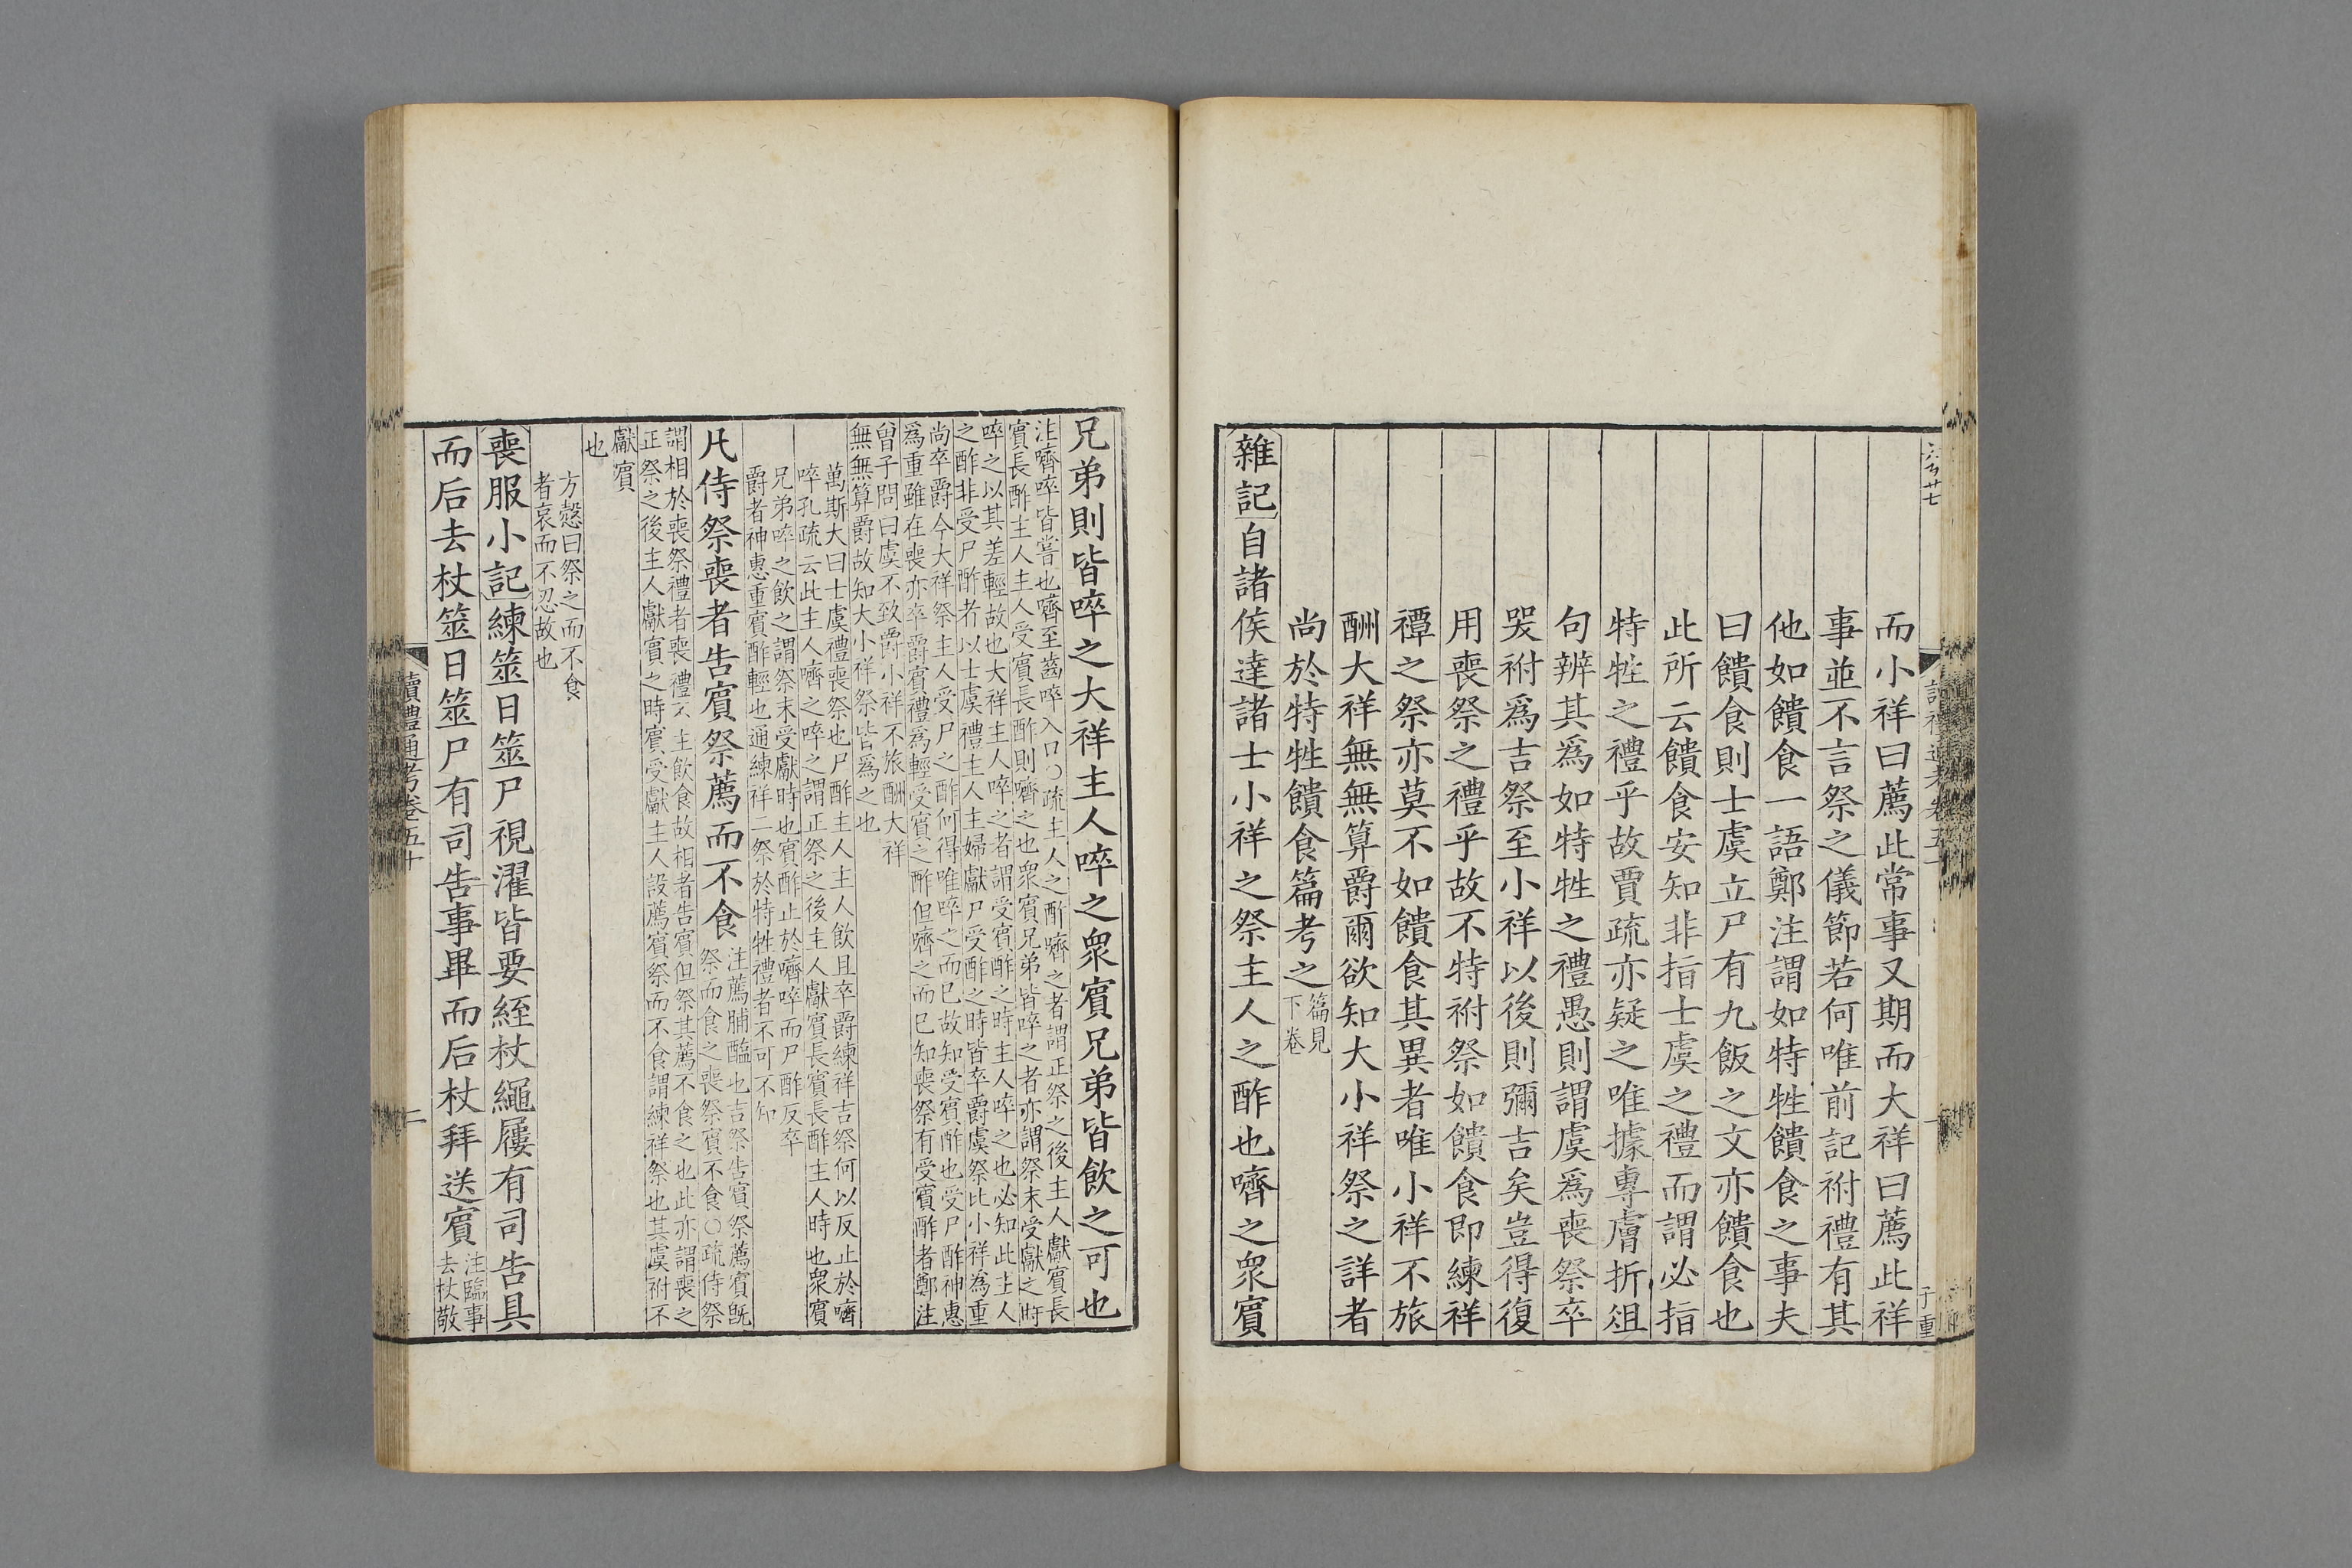 而小祥曰薦此常事又期而大祥曰薦此祥
事並不言祭之儀節若何唯前記祔禮有其
他如饋食一語鄭注謂如特牲饋食之事夫
曰饋食則士虞立尸有九飯之文亦饋食也
此所云饋食安知非指士虞之禮而謂必指
特牲之禮乎故賈疏亦疑之唯據專膚折俎
句辨其為如特牲之禮愚則謂虞為喪祭卒
哭祔為吉祭至小祥以後則彌吉矣豈得復
用喪祭之禮乎故不特祔祭如饋食即練祥
禫之祭亦莫不如饋食其異者唯小祥不旅
酬大祥無無算爵爾欲知大小祥祭之詳者
尚於特牲饋食篇考之篇見
下卷
雜記自諸侯達諸士小祥之祭主人之酢也嚌之眾賓
兄弟則皆啐之大祥主人啐之眾賓兄弟皆飲之可也
注嚌啐皆嘗也嚌至齒啐入口○疏主人之酢嚌之者謂正祭之後主人獻賓長
賓長酢主人主人受賓長酢則嚌之也眾賓兄弟皆啐之者亦謂祭末受獻之時
啐之以其差輕故也大祥主人啐之者謂受賓酢之時主人啐之也必知此主人
之酢非受尸酢者以士虞禮主人主婦獻尸受酢之時皆卒爵虞祭比小祥為重
尚卒爵今大祥祭主人受尸之酢何得唯啐之而已故知受賓酢也受尸酢神惠
為重雖在喪亦卒爵賓禮為輕受賓之酢但嚌之而已知喪祭有受賓酢者鄭注
曾子問曰虞不致爵小祥不旅酬大祥
無無算爵故知大小祥祭皆為之也
萬斯大曰士虞禮喪祭也尸酢主人主人飲且卒爵練祥吉祭何以反止於嚌
啐孔疏云此主人嚌之啐之謂正祭之後主人獻賓長賓長酢主人時也眾賓
兄弟啐之飲之謂祭末受獻時也賓酢止於嚌啐而尸酢反卒
爵者神惠重賓酢輕也通練祥二祭於特牲禮者不可不知
凡侍祭喪者告賓祭薦而不食注薦脯醢也吉祭告賓祭薦賓既
祭而食之喪祭賓不食○疏侍祭
謂相於喪祭禮者喪禮不主飲食故相者告賓但祭其薦不食之也此亦謂喪之
正祭之後主人獻賓之時賓受獻主人設薦賓祭而不食謂練祥祭也其虞祔不
獻賓
也
方愨曰祭之而不食
者哀而不忍故也
喪服小記練筮日筮尸視濯皆要絰杖繩屨有司告具
而后去杖筮日筮尸有司告事畢而后杖拜送賓注臨事
去杖敬
讀禮通考卷五十
二